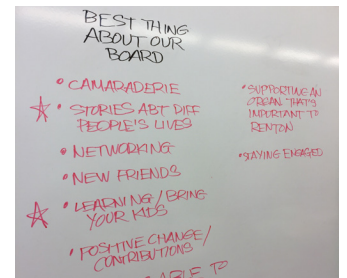 BEST THING
ABOUT OUR
BOARD
• CAMARADERIE
• STORIES ABT DIFF
PEOPLE'S LIVES
• NETWORKING
• NEW FRIENDS
• LEARNING / BRING
YOUR KIDS
• POSITIVE CHANGE /
CONTRIBUTIONS
ABLE TO
• SUPPORTING AN
ORGAN THAT'S
IMPORTANT TO
RENTON
• STAYING ENGAGED